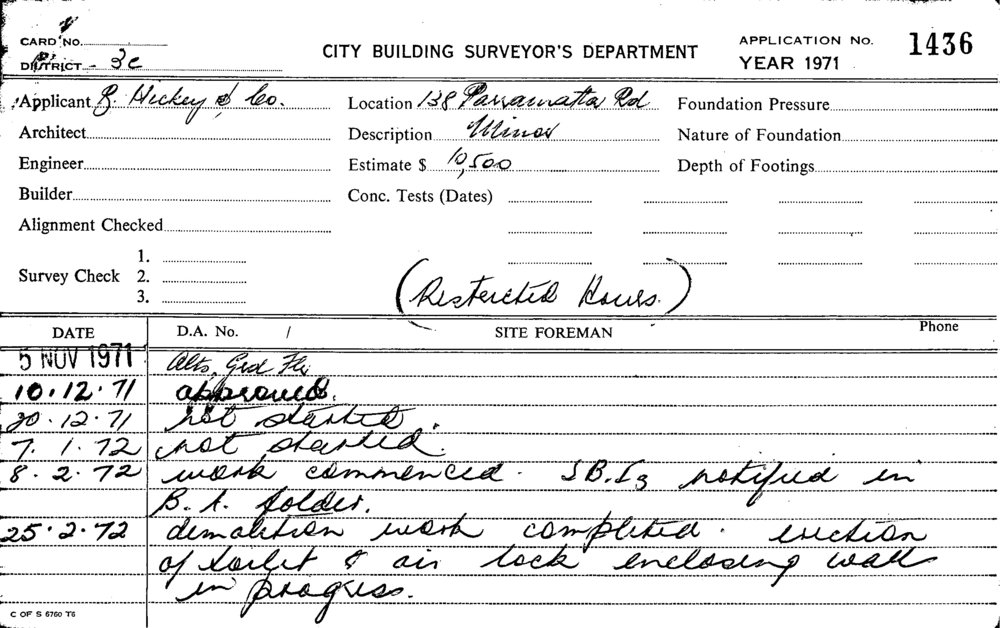 CARD NO.
DISTRICT - 3C
CITY BUILDING SURVEYOR'S DEPARTMENT
APPLICATION No. 1436
YEAR 1971
Applicant R. Hickey & Co. Location 138 Parramatta Rd Foundation Pressure
Architect Description Minor Nature of Foundation
Engineer Estimate $ 10,500 Depth of Footings
Builder Conc. Tests (Dates)
Alignment Checked
Survey Check 1.
2.
3.
(Restercted Hours.)
DATE D.A. No. / SITE FOREMAN Phone
5 NOV 1971 Alts. Grd Flr
10.12.71 approved.
20.12.71 not started.
7.1.72 not started.
8.2.72 work commenced. notified in
B.A. folder.
25.2.72 demolition work completed. erection
of toilet & air lock enclosing wall
in progress.
C OF S 6760 T6